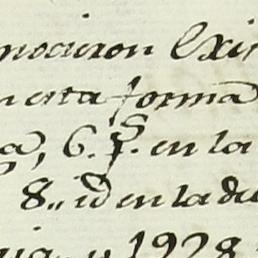 nocieron Exis
n esta forma
a, 6. fs. en la
8,, id en la de
1928